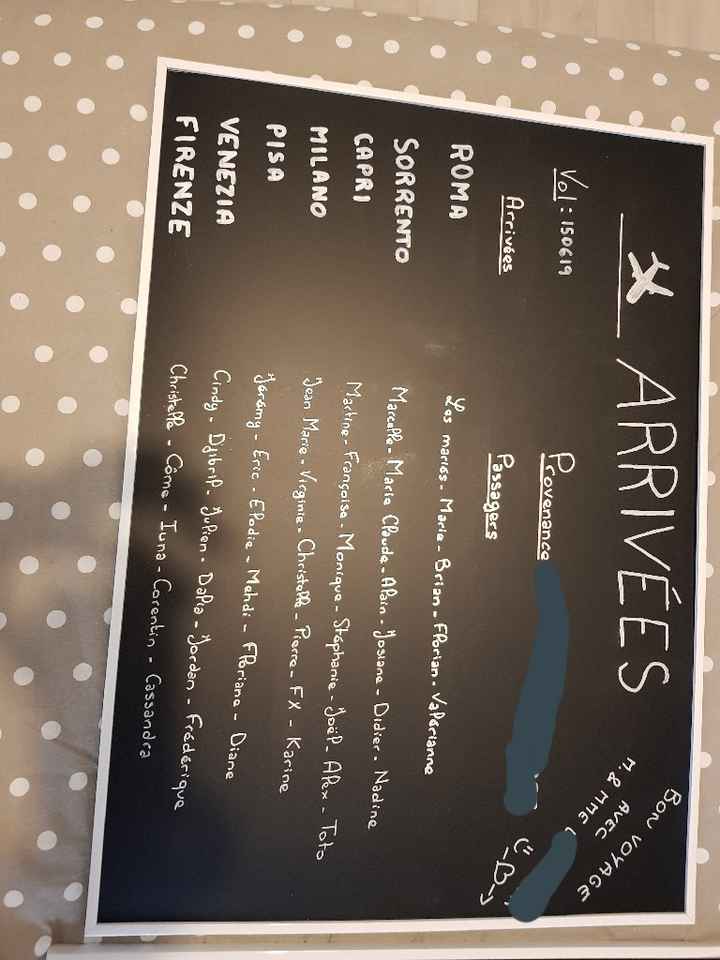 ARRIVÉES
BON VOYAGE
AVEC
M. & MME
Vol : 150619
Provenance
Arrivées
Passagers
ROMA Les mariés - Marie - Brian - Florian - Valérianne
SORRENTO Marcelle - Marie Claude - Alain - Josiane - Didier - Nadine
CAPRI Martine - Françoise - Monique - Stéphanie - Joël - Alex - Toto
MILANO Jean Marie - Virginie - Christelle - Pierre - FX - Karine
PISA Jérémy - Eric - Elodie - Mehdi - Floriane - Diane
VENEZIA Cindy - Djibril - Julien - Dalia - Jordan - Frédérique
FIRENZE Christelle - Côme - Iuna - Corentin - Cassandra